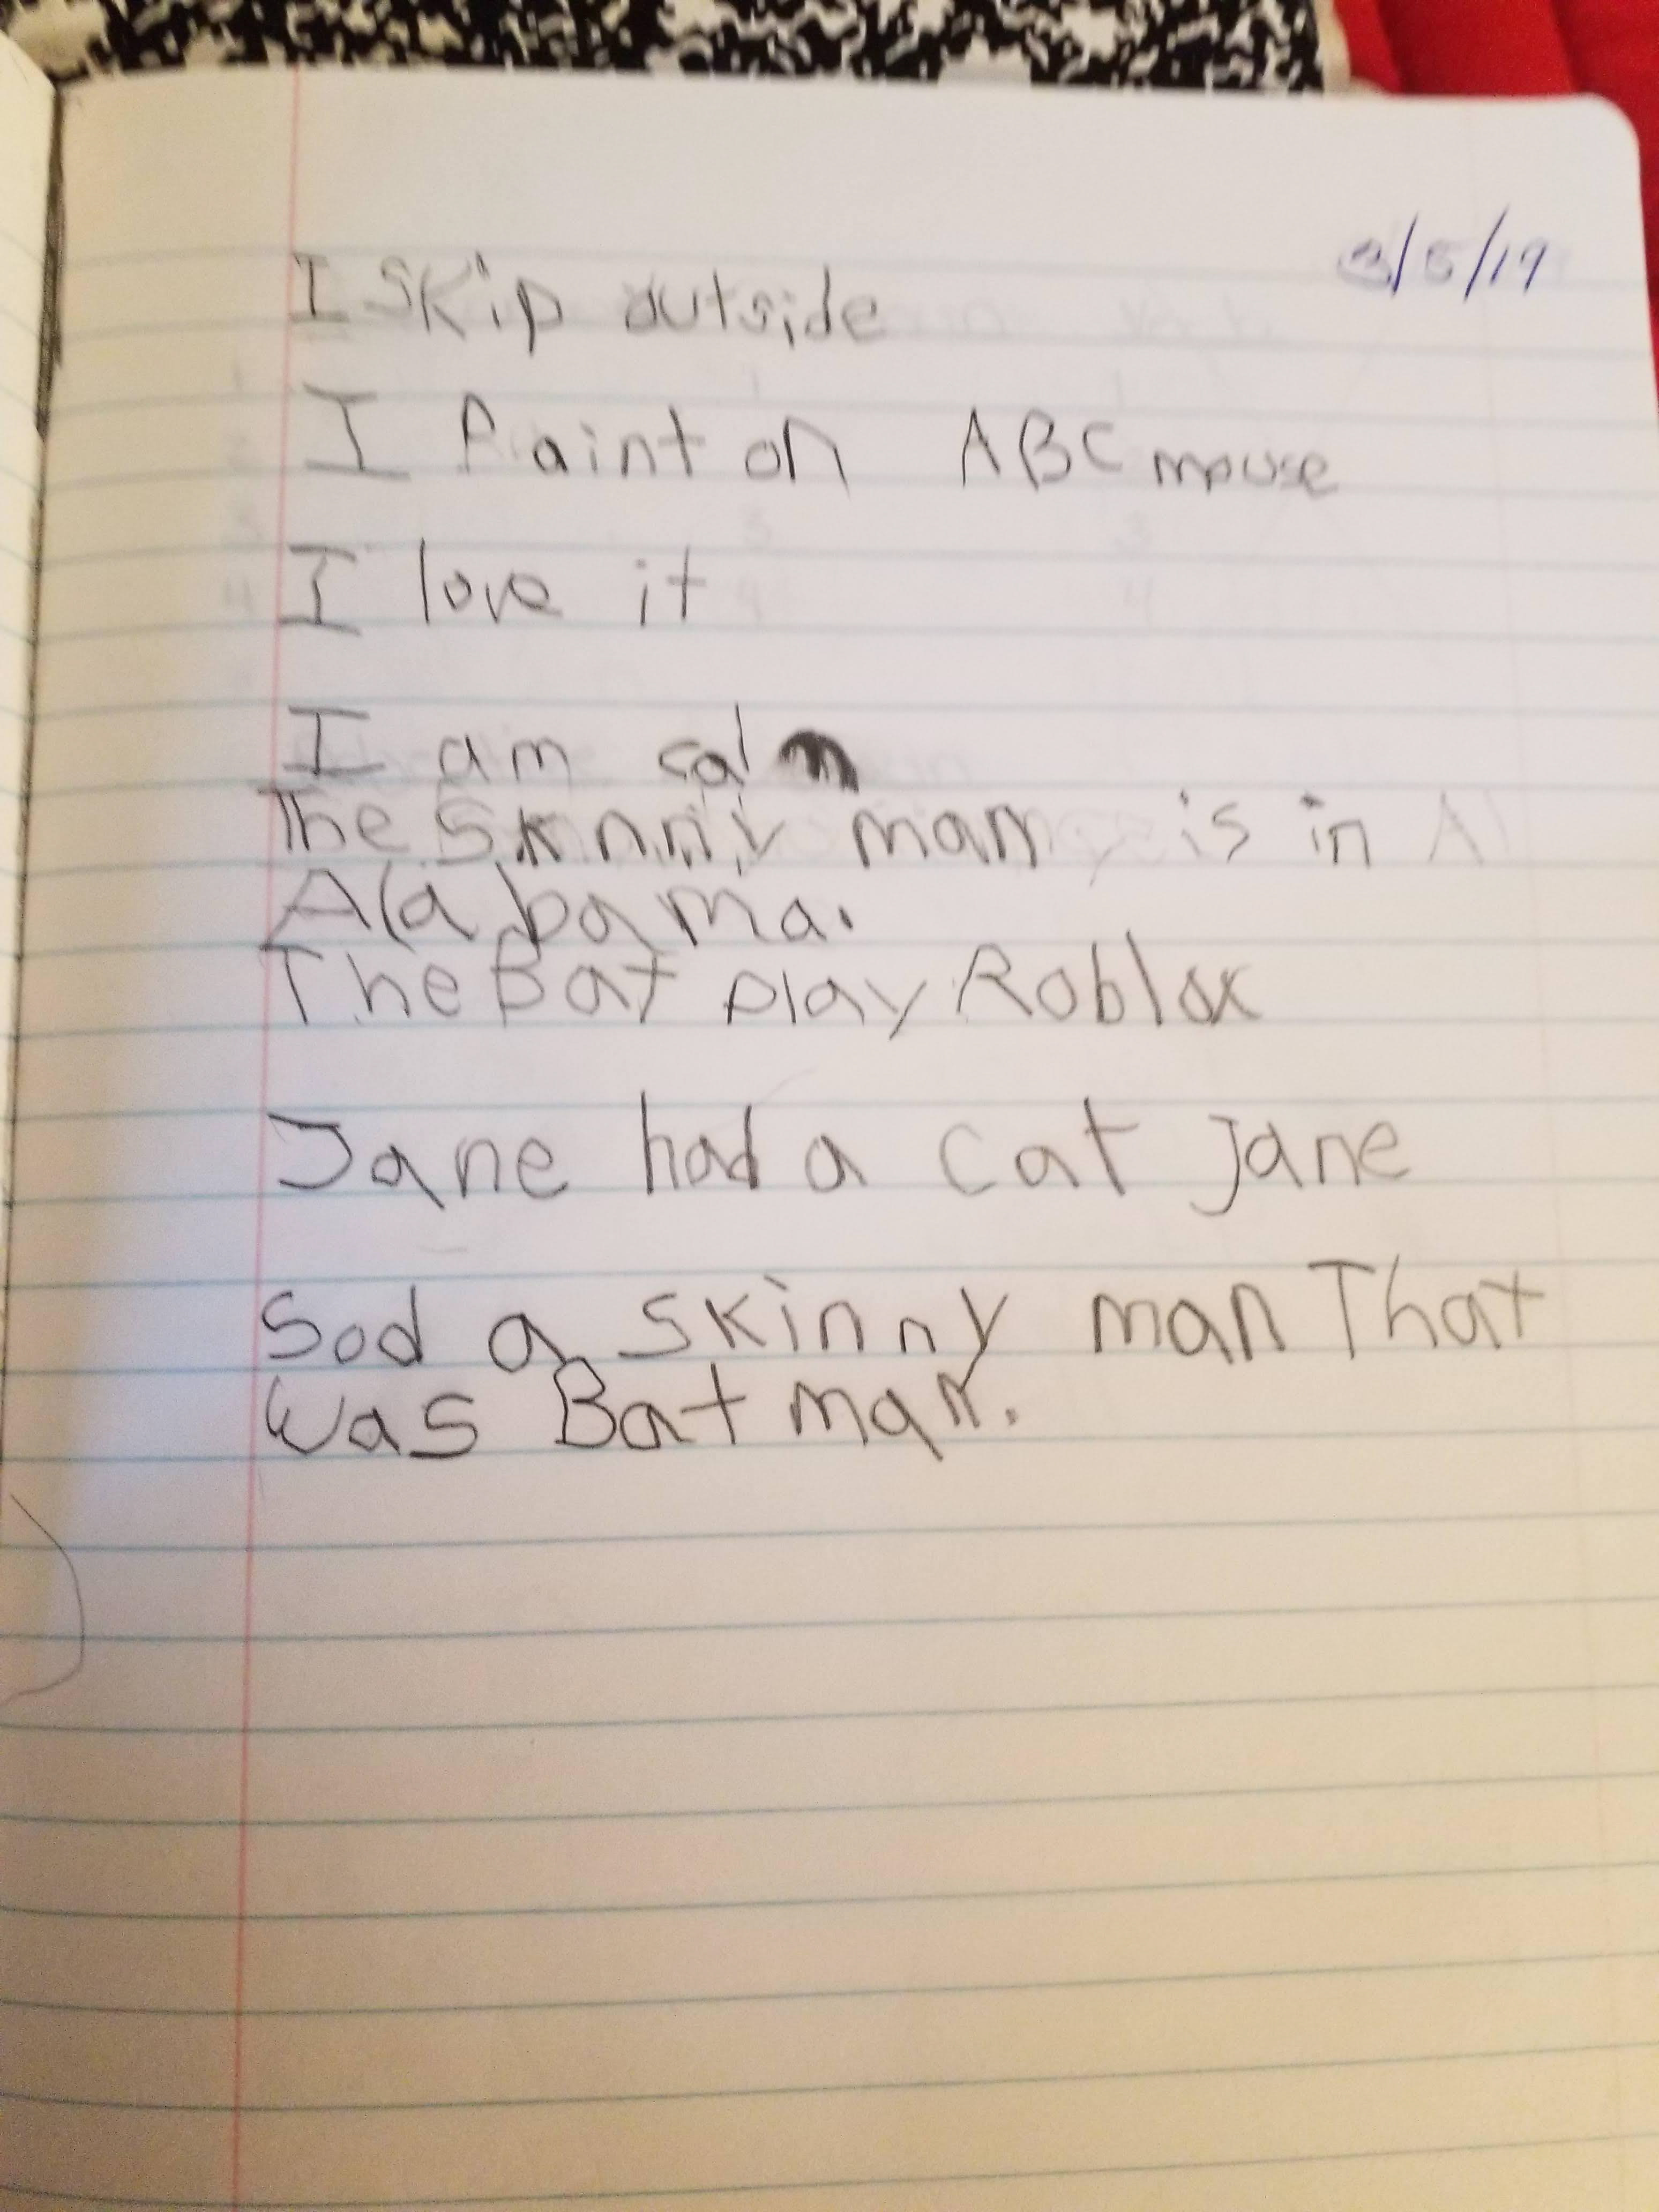 3/5/19
I Skip outside
I Paint on ABC mouse
I love it
I am
The Sknniy man is in Al
Alabama.
The Bat play Roblox
Jane had a cat Jane
Sod a skinny man That
was Bat man.